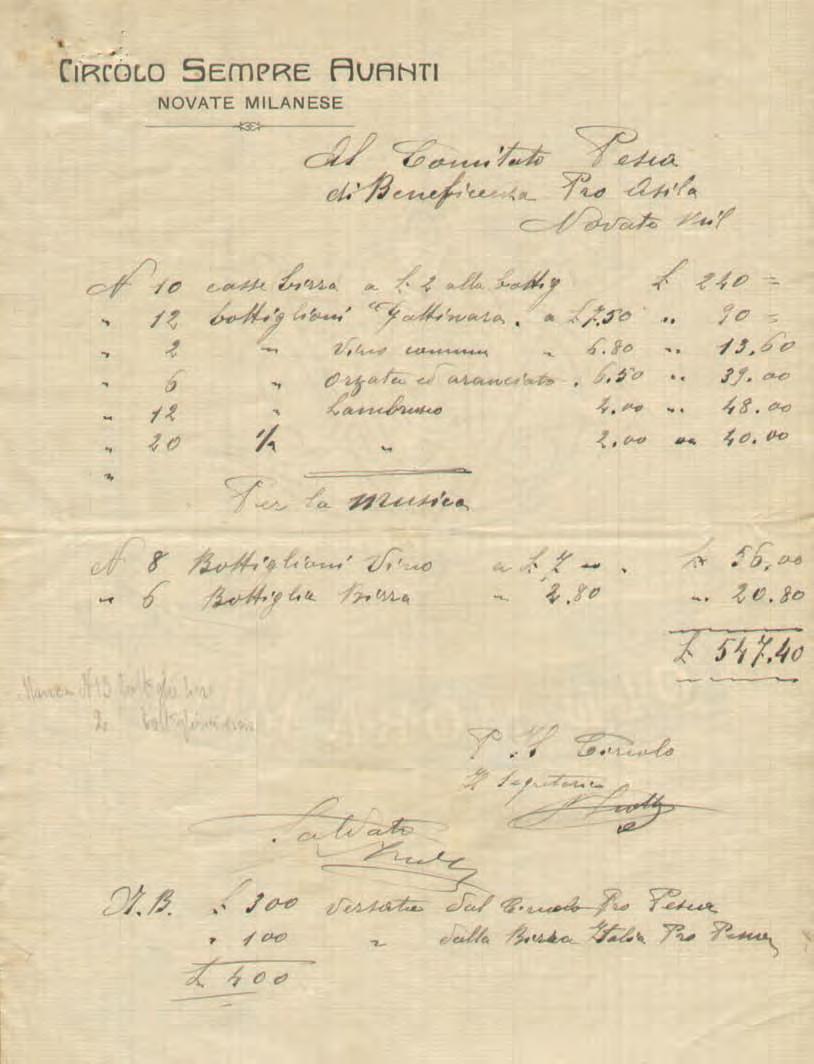 CIRCOLO SEMPRE AVANTI
NOVATE MILANESE
Al Comitato Pesca
di Beneficenza Pro Asilo
Novate Mil
N 10 casse birra a £ 2 alla bottig £ 240 =
" 12 bottiglioni "Gattinara" a £ 7.50 " 90 =
" 2 " vino comune " 6.80 " 13,60
" 6 " Orzata ed aranciato " 6.50 " 39.00
" 12 " Lambrusco 4,00 " 48.00
" 20 1/2 " 2,00 " 40.00
"
Per la musica
N 8 Bottiglioni Vino a £ 7 " £ 56,00
" 6 Bottiglia Birra " 2.80 " 20.80
£ 547.40
N 13 bottiglie
2
P. Il Circolo
Il Segretario
Saldato
N.B. £ 300 versate dal Circolo Pro Pesca
" 100 " dalla Birra Italia Pro Pesca
£ 400